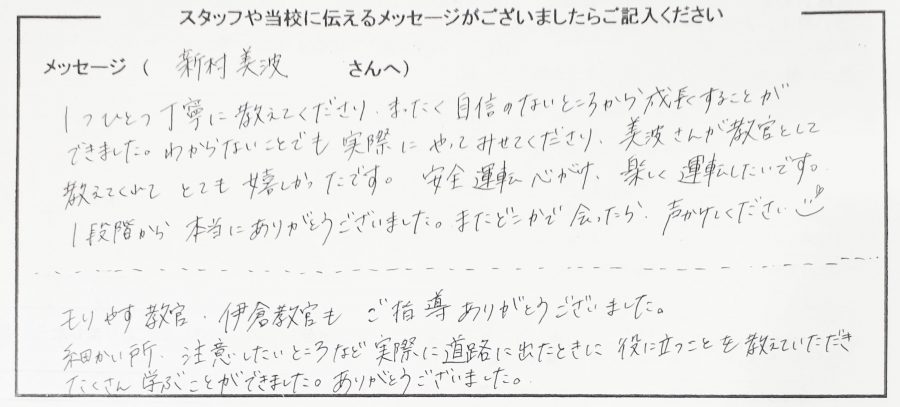 スタッフや当校に伝えるメッセージがございましたらご記入ください
メッセージ ( 新村美波 さんへ)
1つひとつ丁寧に教えてくださり、まったく自信のないところから成長することが
できました。わからないことでも実際にやってみせてくださり、美波さんが教官として
教えてくれて とても嬉しかったです。 安全運転心がけ、楽しく運転したいです。
1段階から本当にありがとうございました。またどこかで会ったら、声かけしてください
もりやす教官、伊倉教官も ご指導ありがとうございました。
細かい所、注意したいところなど実際に道路に出たときに役に立つことを教えていただき
たくさん学ぶことができました。ありがとうございました。